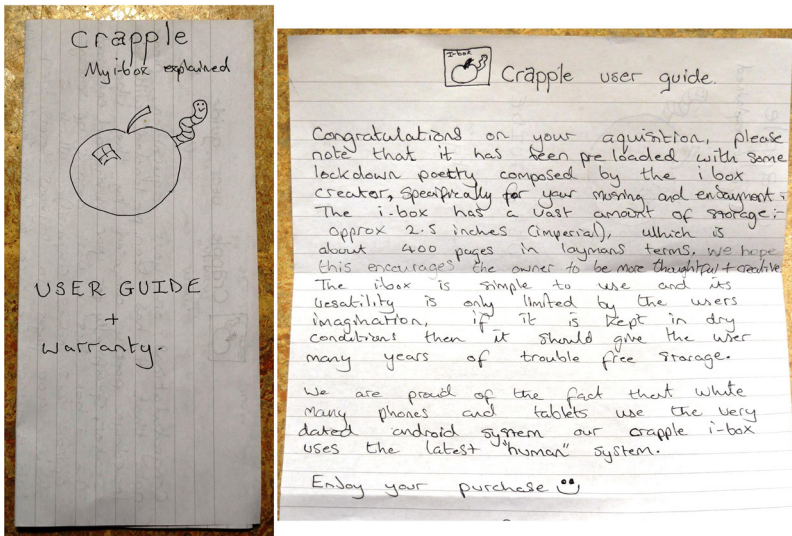 Crapple
My i-box explained
USER GUIDE
+
warranty.
I-box
Crapple user guide.
Congratulations on your aquisition, please
note that it has been pre loaded with some
lockdown poetty composed by the i box
creator, specifically for your musing and enjoyment.
The i-box has a vast amount of storage:-
approx 2.5 inches (imperial), which is
about 400 pages in laymans terms, we hope
this encourages the owner to be more thoughtful + creative
The ibox is simple to use and its
versatility is only limited by the users
imagination, if it is kept in dry
conditions then it should give the user
many years of trouble free storage.
We are proud of the fact that while
many phones and tablets use the very
dated android system our crapple i-box
uses the latest "human" system.
Enjoy your purchase